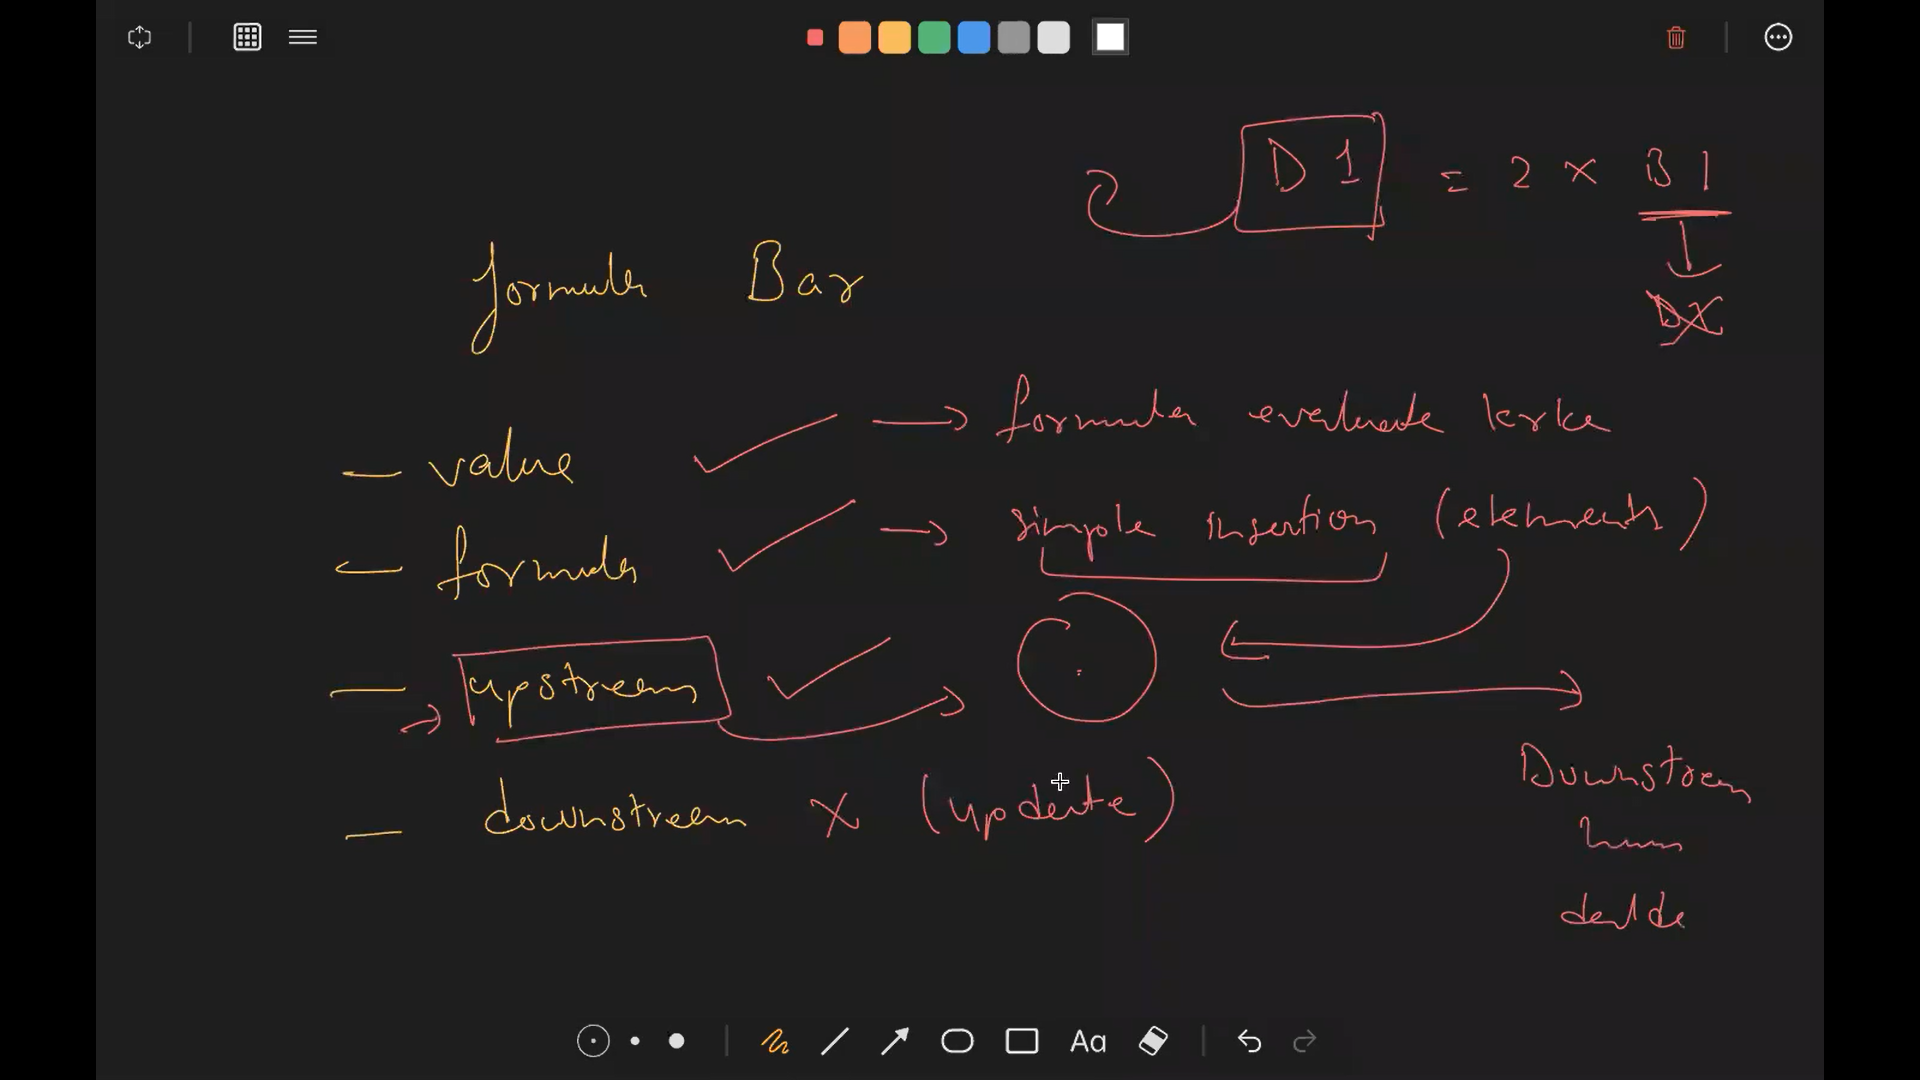 D 1 = 2 × B 1
Formula Bar
— value ✓ → formula evaluate krke
— formula ✓ → simple insertion (elements)
— upstream ✓
— downstream X (update)
Downstream
hum
Aa